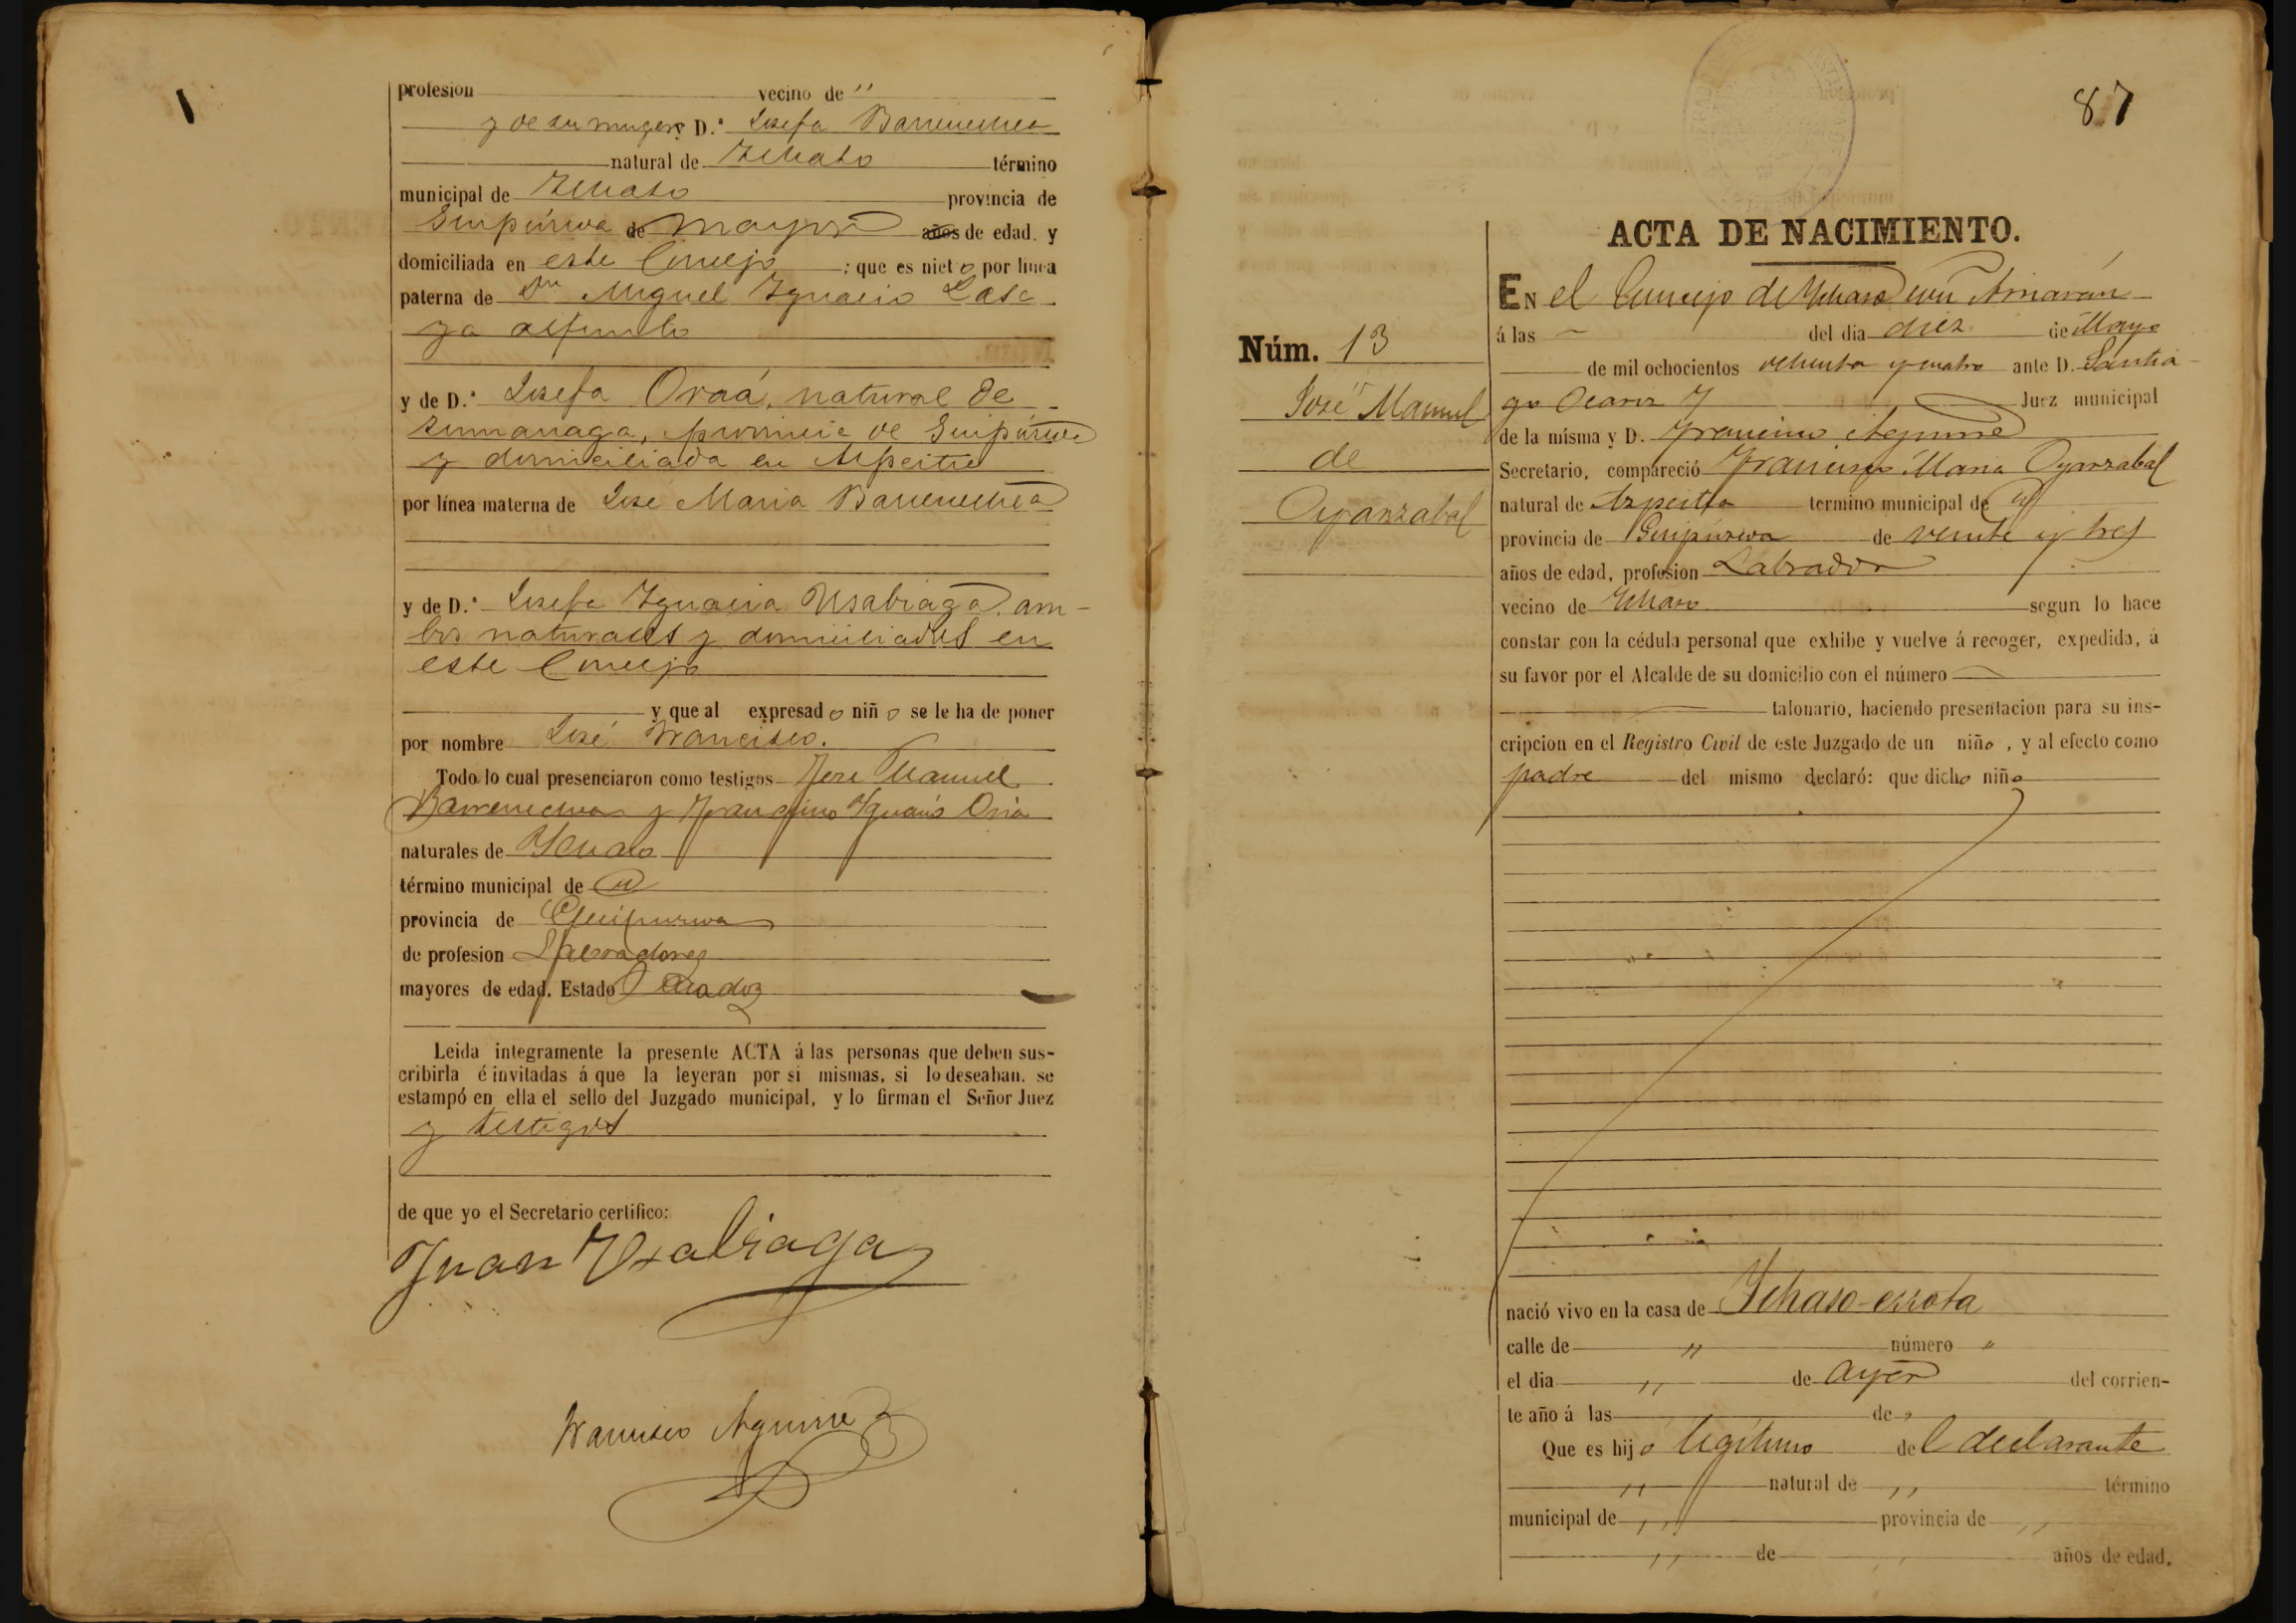 profesion vecino de "
y de su muger D.ª Josefa Barrenechea
natural de Ichaso término
municipal de Ichaso provincia de
Guipúzcoa de mayor años de edad, y
domiciliada en este Concejo ; que es nieto por línea
paterna de Dn Miguel Ignacio Lasa
ya difunto
y de D.ª Josefa Oraá, natural de
Zumarraga, provincia de Guipúzcoa
y domiciliada en Azpeitia
por línea materna de José Maria Barrenechea
y de D.ª Josefa Ignacia Usabiaga, am-
bos naturales y domiciliados en
este Concejo
y que al expresado niño se le ha de poner
por nombre José Francisco.
Todo lo cual presenciaron como testigos José Manuel
Barrenechea y Francisco Ignacio Oria
naturales de Ichaso
término municipal de id
provincia de Guipuzcoa
de profesion Labradores
mayores de edad. Estado Casados
Leida integramente la presente ACTA á las personas que deben sus-
cribirla é invitadas á que la leyeran por si mismas, si lo deseaban, se
estampó en ella el sello del Juzgado municipal, y lo firman el Señor Juez
y testigos
de que yo el Secretario certifico:
Juan Usabiaga
Francisco Aguirre
87
ACTA DE NACIMIENTO.
Núm. 13
José Manuel
de
Oyarzabal
EN el Concejo de Ichaso con Arriarán
á las del dia diez de Mayo
de mil ochocientos ochenta y cuatro ante D. Santia-
go Ocariz Juez municipal
de la misma y D. Francisco Aguirre
Secretario, compareció Francisco Maria Oyarzabal
natural de Azpeitia termino municipal de id
provincia de Guipúzcoa de veinte y tres
años de edad, profesion Labrador
vecino de Ichaso segun lo hace
constar con la cédula personal que exhibe y vuelve á recoger, expedida, á
su favor por el Alcalde de su domicilio con el número
talonario, haciendo presentacion para su ins-
cripcion en el Registro Civil de este Juzgado de un niño , y al efecto como
padre del mismo declaró: que dicho niño
nació vivo en la casa de Ichaso-errota
calle de " número "
el dia " de ayer del corrien-
te año á las de "
Que es hijo legítimo del declarante
" natural de " término
municipal de " provincia de "
" de " años de edad.